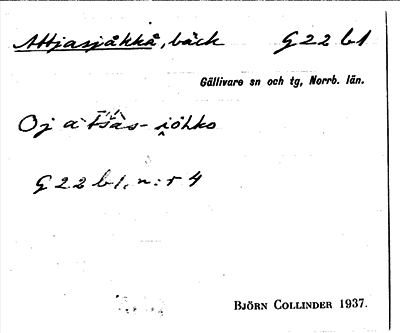 Attjasjåkkå, bäck G 22 b1
Gällivare sn och tg, Norrb. län.
Oj
G 22 b1, n:r 4
BJÖRN COLLINDER 1937.